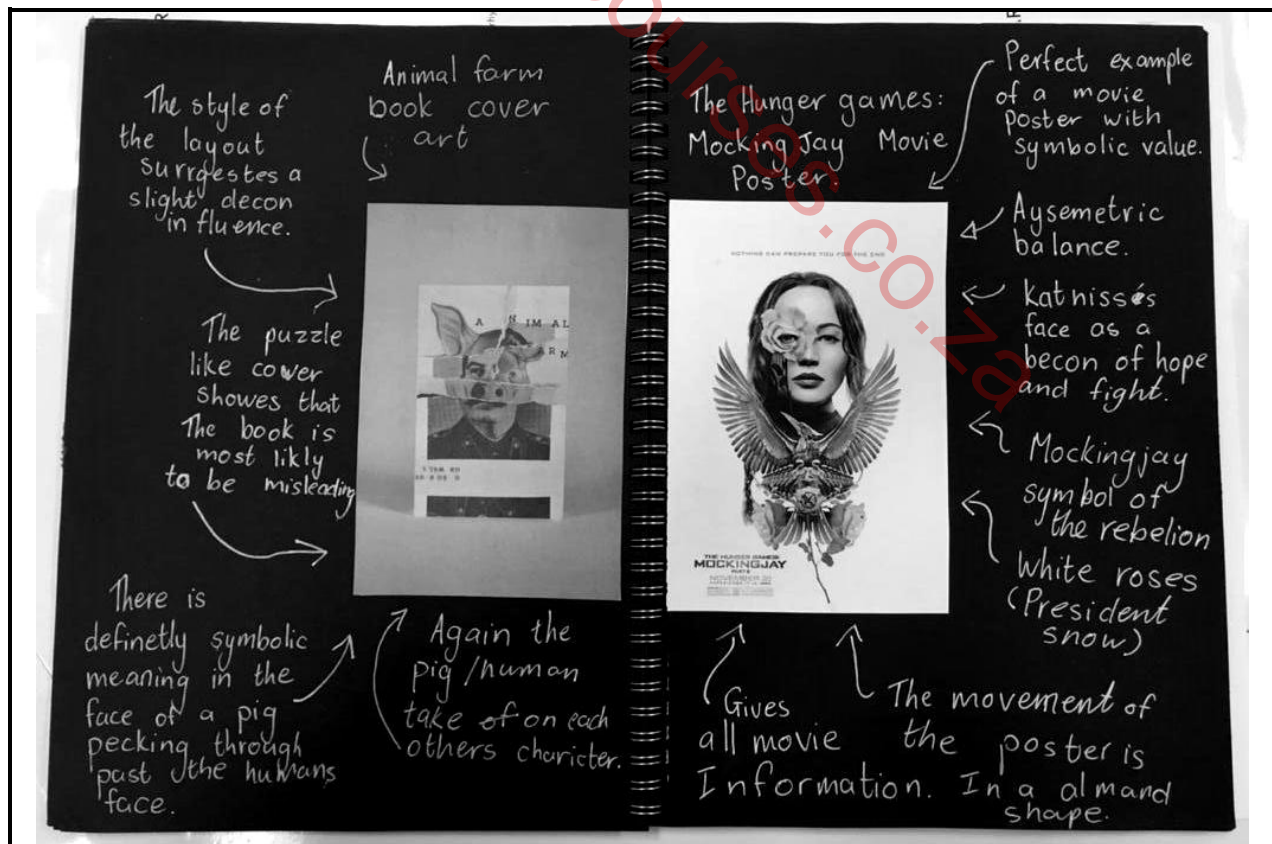 The style of
the layout
Surrgestes a
slight decon
influence.
Animal farm
book cover
art
The puzzle
like cover
showes that
The book is
most likly
to be misleading
There is
definetly symbolic
meaning in the
face of a pig
pecking through
past the humans
face.
Again the
pig/human
take of on each
others charicter.
A N IM AL
ARM
The Hunger games:
Mocking Jay Movie
Poster.
Perfect example
of a movie
poster with
symbolic value.
Aysemetric
balance.
Katniss's
face as a
becon of hope
and fight.
Mockingjay
symbol of
the rebelion
White roses
(President
snow)
NOTHING CAN PREPARE YOU FOR THE END
THE HUNGER GAMES
MOCKINGJAY
NOVEMBER 20
Gives
all movie
Information.
The movement of
the poster is
In a almand
shape.
ourses.co.za